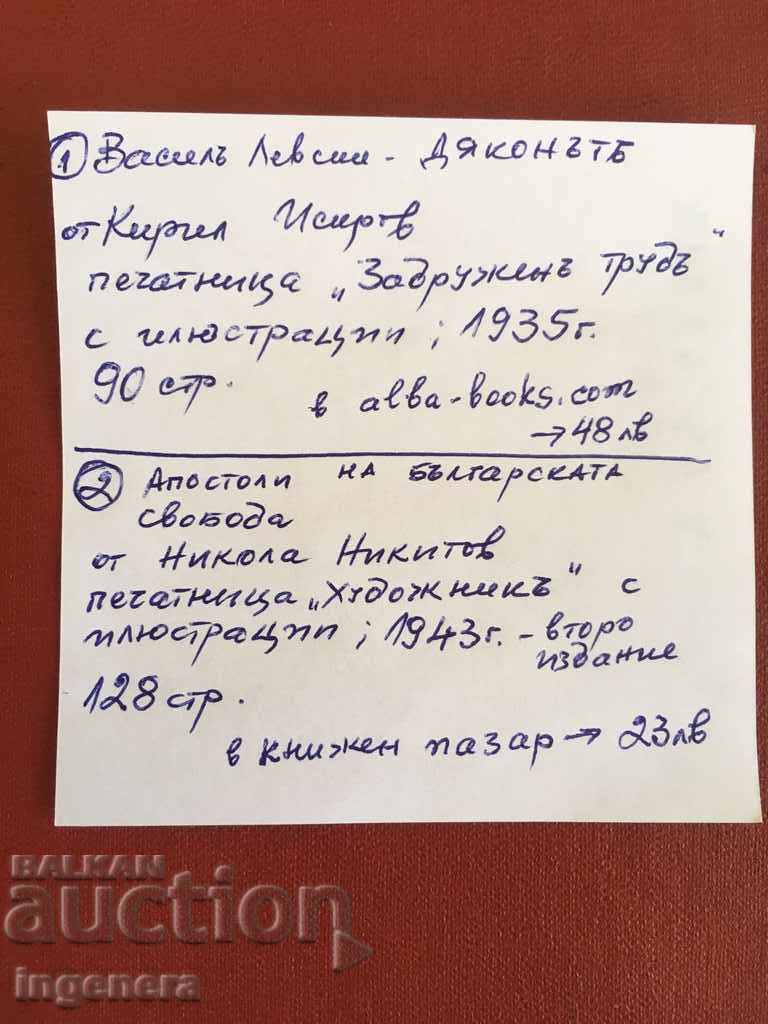 ① Василъ Левски - ДЯКОНЪТЪ
от Кирил Искров
печатница „Задруженъ трудъ“
с илюстрации ; 1935г.
90 стр.
в alba-books.com
→ 48 лв
② Апостоли на българската
свобода
от Никола Никитов
печатница „Художникъ“ с
илюстрации ; 1943г. - второ
издание
128 стр.
в книжен пазар → 23 лв
BALKAN
auction
ingenera